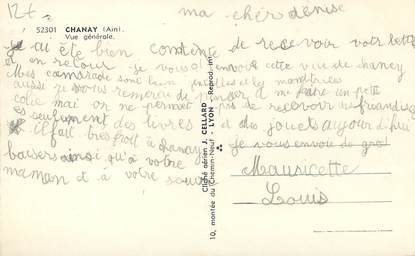 12f
52301 CHANAY (Ain).
Vue générale.
ma chèr dénise
je ai été bien contente de recevoir votr lettre
et en retour je vous envoie cette vue de chaney
Mes camarade sont bien gentilles et les monitrices
aussi je vous remercie de penser a me faire un petit
colie mai on ne permet pas de recevoir des friandises
seulement des livres et des jouets aujour d'hui
il fait tres froit à chanay je vous envoie de gros
baisers ainsi qu'à votre
maman et à votre soeur
Mauricette
Louis
Cliché aérien J. CELLARD
10, montée du Chemin-Neuf - LYON - Reprod. int.